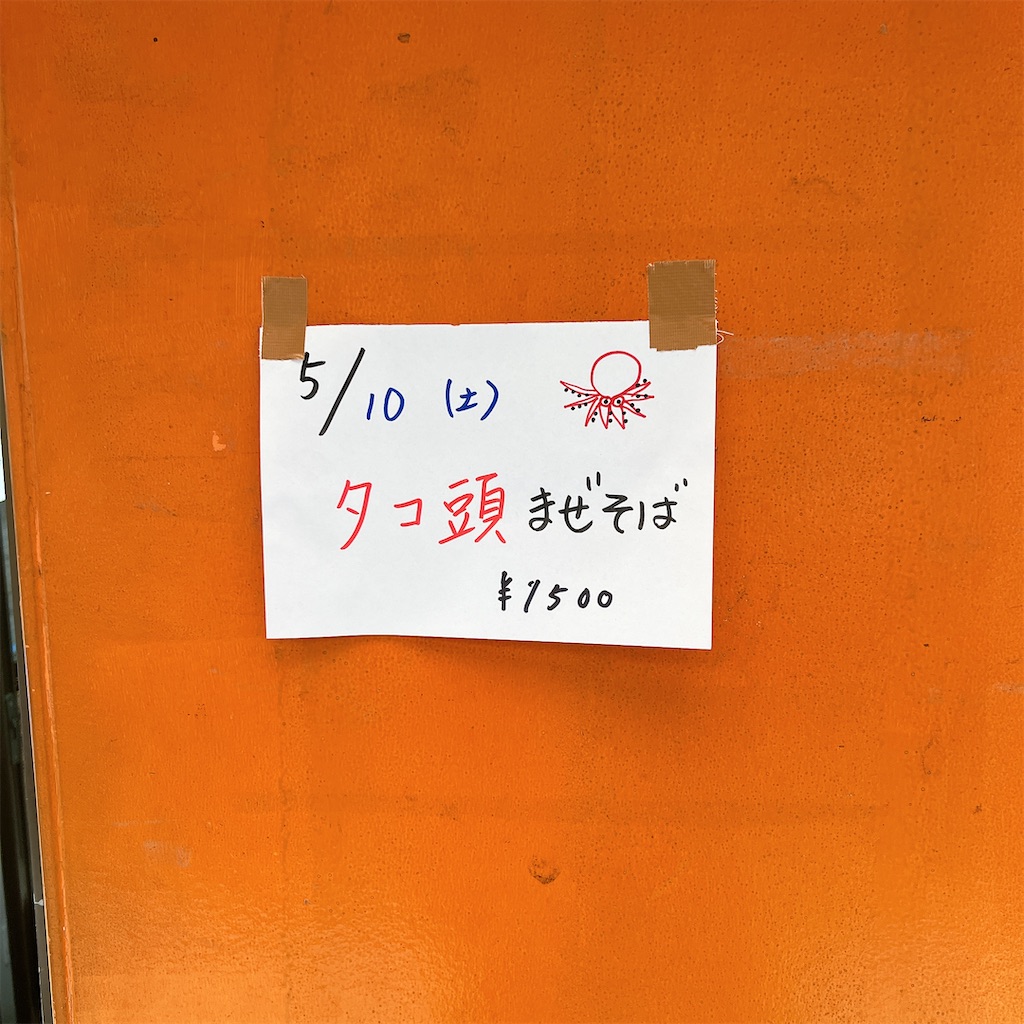 5/10(土)
タコ頭まぜそば
¥1500